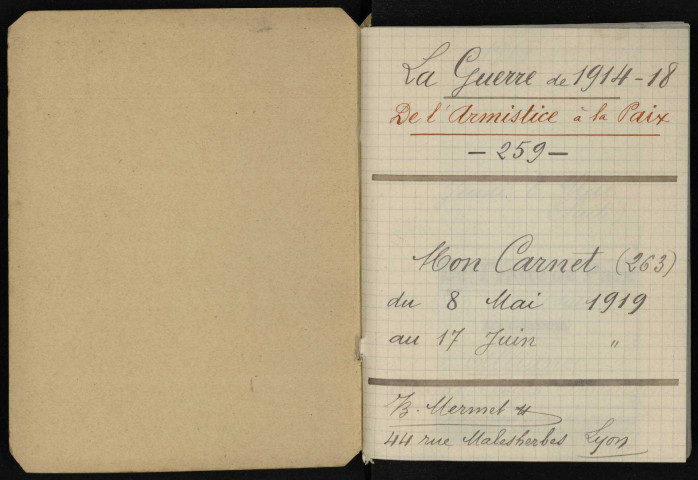 La Guerre de 1914-18
De l'Armistice à la Paix
- 259 -
Mon Carnet (263)
du 8 Mai 1919
au 17 Juin "
B. Mermet
44 rue Malesherbes Lyon